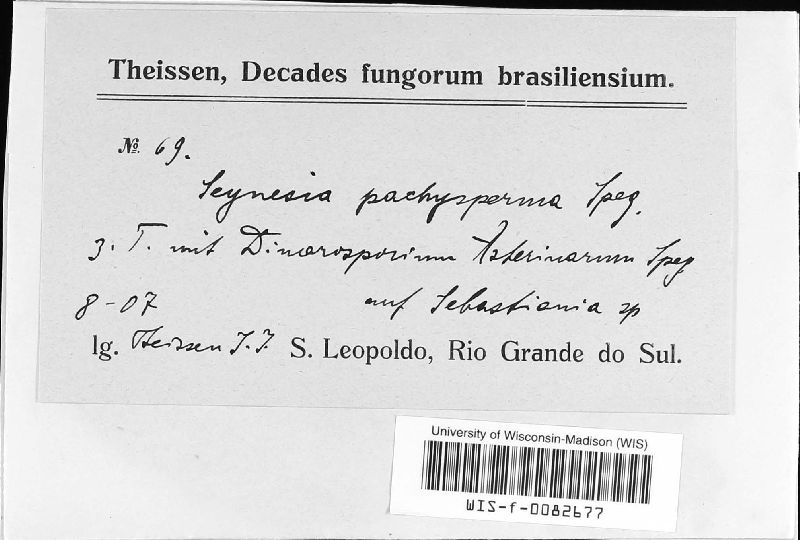 Theissen, Decades fungorum brasiliensium.
№ 69.
Seynesia pachysperma Speg.
z. T. mit Dimerosporium Asterinarum Speg.
8-07 auf Sebastiania sp
lg. Theissen S. J. S. Leopoldo, Rio Grande do Sul.
University of Wisconsin-Madison (WIS)
WIS-f-0082677